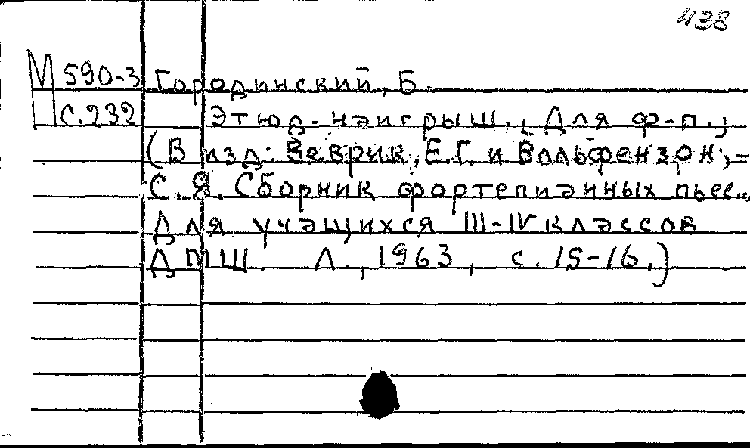 438
М 590-3 Городинский, Б.
С.232 Этюд-наигрыш. [Для ф-п.]
(В изд: Веврик, Е.Г. и Вольфензон,
С.Я. Сборник фортепианных пьес..
для учащихся III-IV классов
ДМШ. Л., 1963, с. 15-16.)